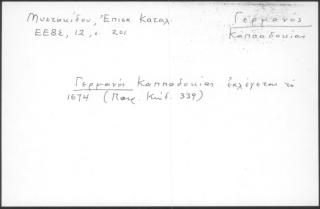 Μυστακίδου, Ἐπισκ. Καταλ.
ΕΕΒΣ, 12, σ. 201
Γερμανος
Καππαδοκίας
Γερμανός Καππαδοκίας ἐκλέγεται τό
1674 (Πατρ. Κώδ. 339)